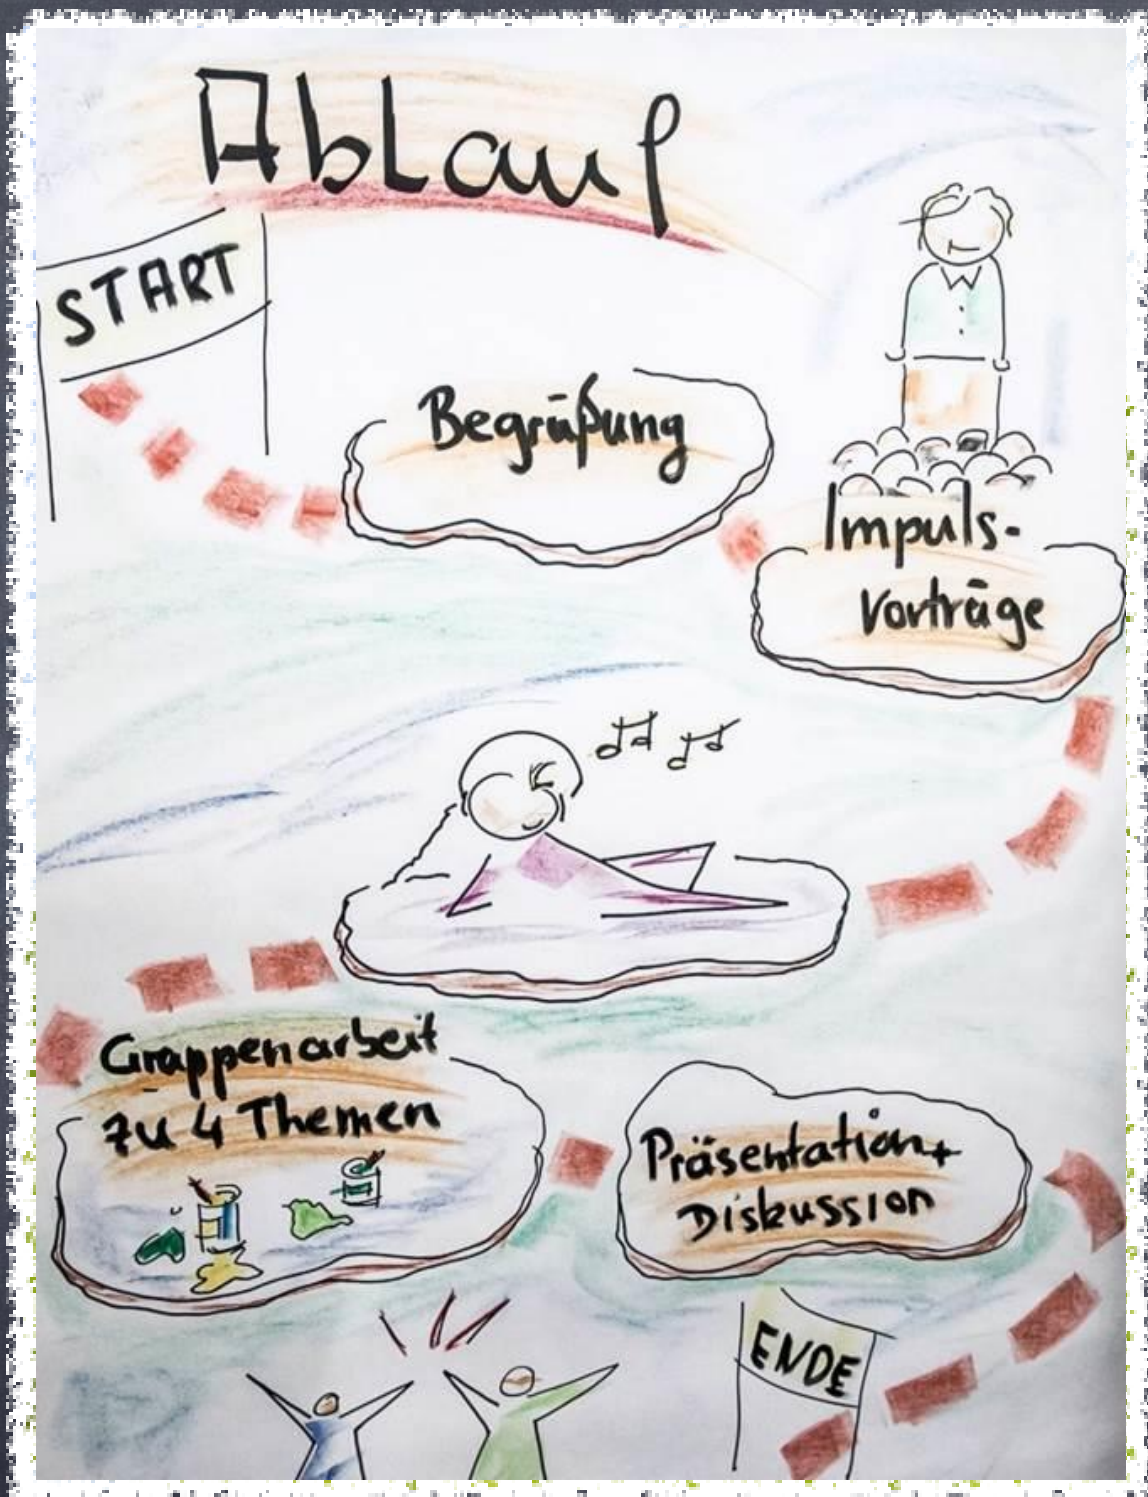 Ablauf
START
Begrüßung
Impuls-
Vorträge
Gruppenarbeit
zu 4 Themen
Präsentation +
Diskussion
ENDE